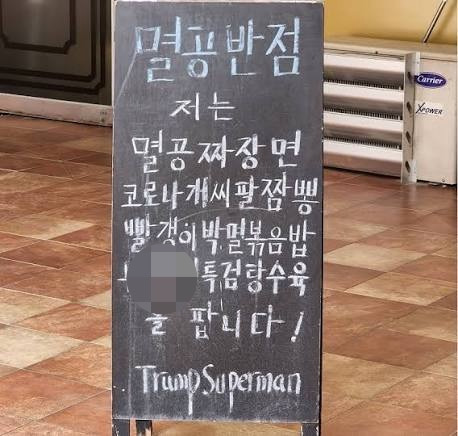 멸공반점
저는
멸공짜장면
코로나개씨팔짬뽕
빨갱이박멸볶음밥
특검탕수육
을 팝니다!
Trump Superman
Carrier
XPOWER